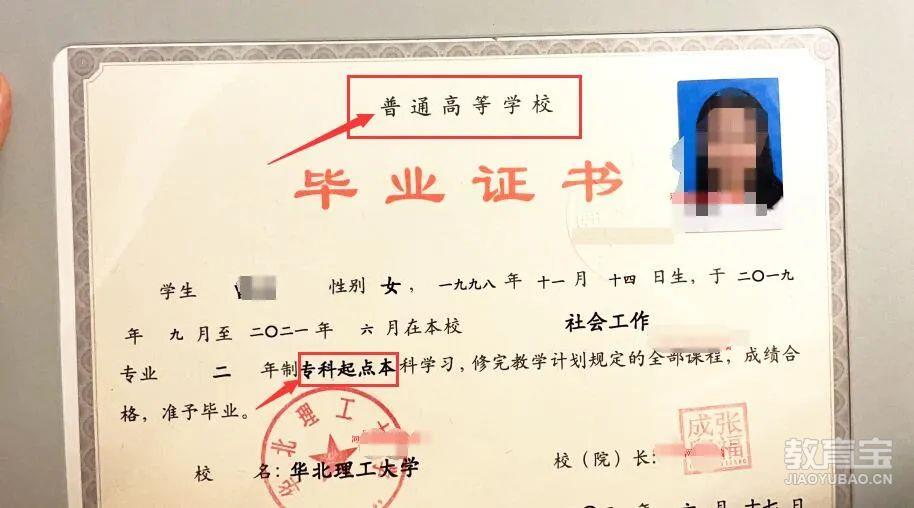 普通高等学校
毕业证书
学生 性别 女，一九九八年 十一月 十四 日生，于 二〇一九
年 九 月至 二〇二一年 六 月在本校 社会工作
专业 二 年制专科起点本科学习，修完教学计划规定的全部课程，成绩合
格，准予毕业。
华北理工大学
校 名：华北理工大学 校（院）长：
张福成
教育宝
JIAOYUBAO.CN